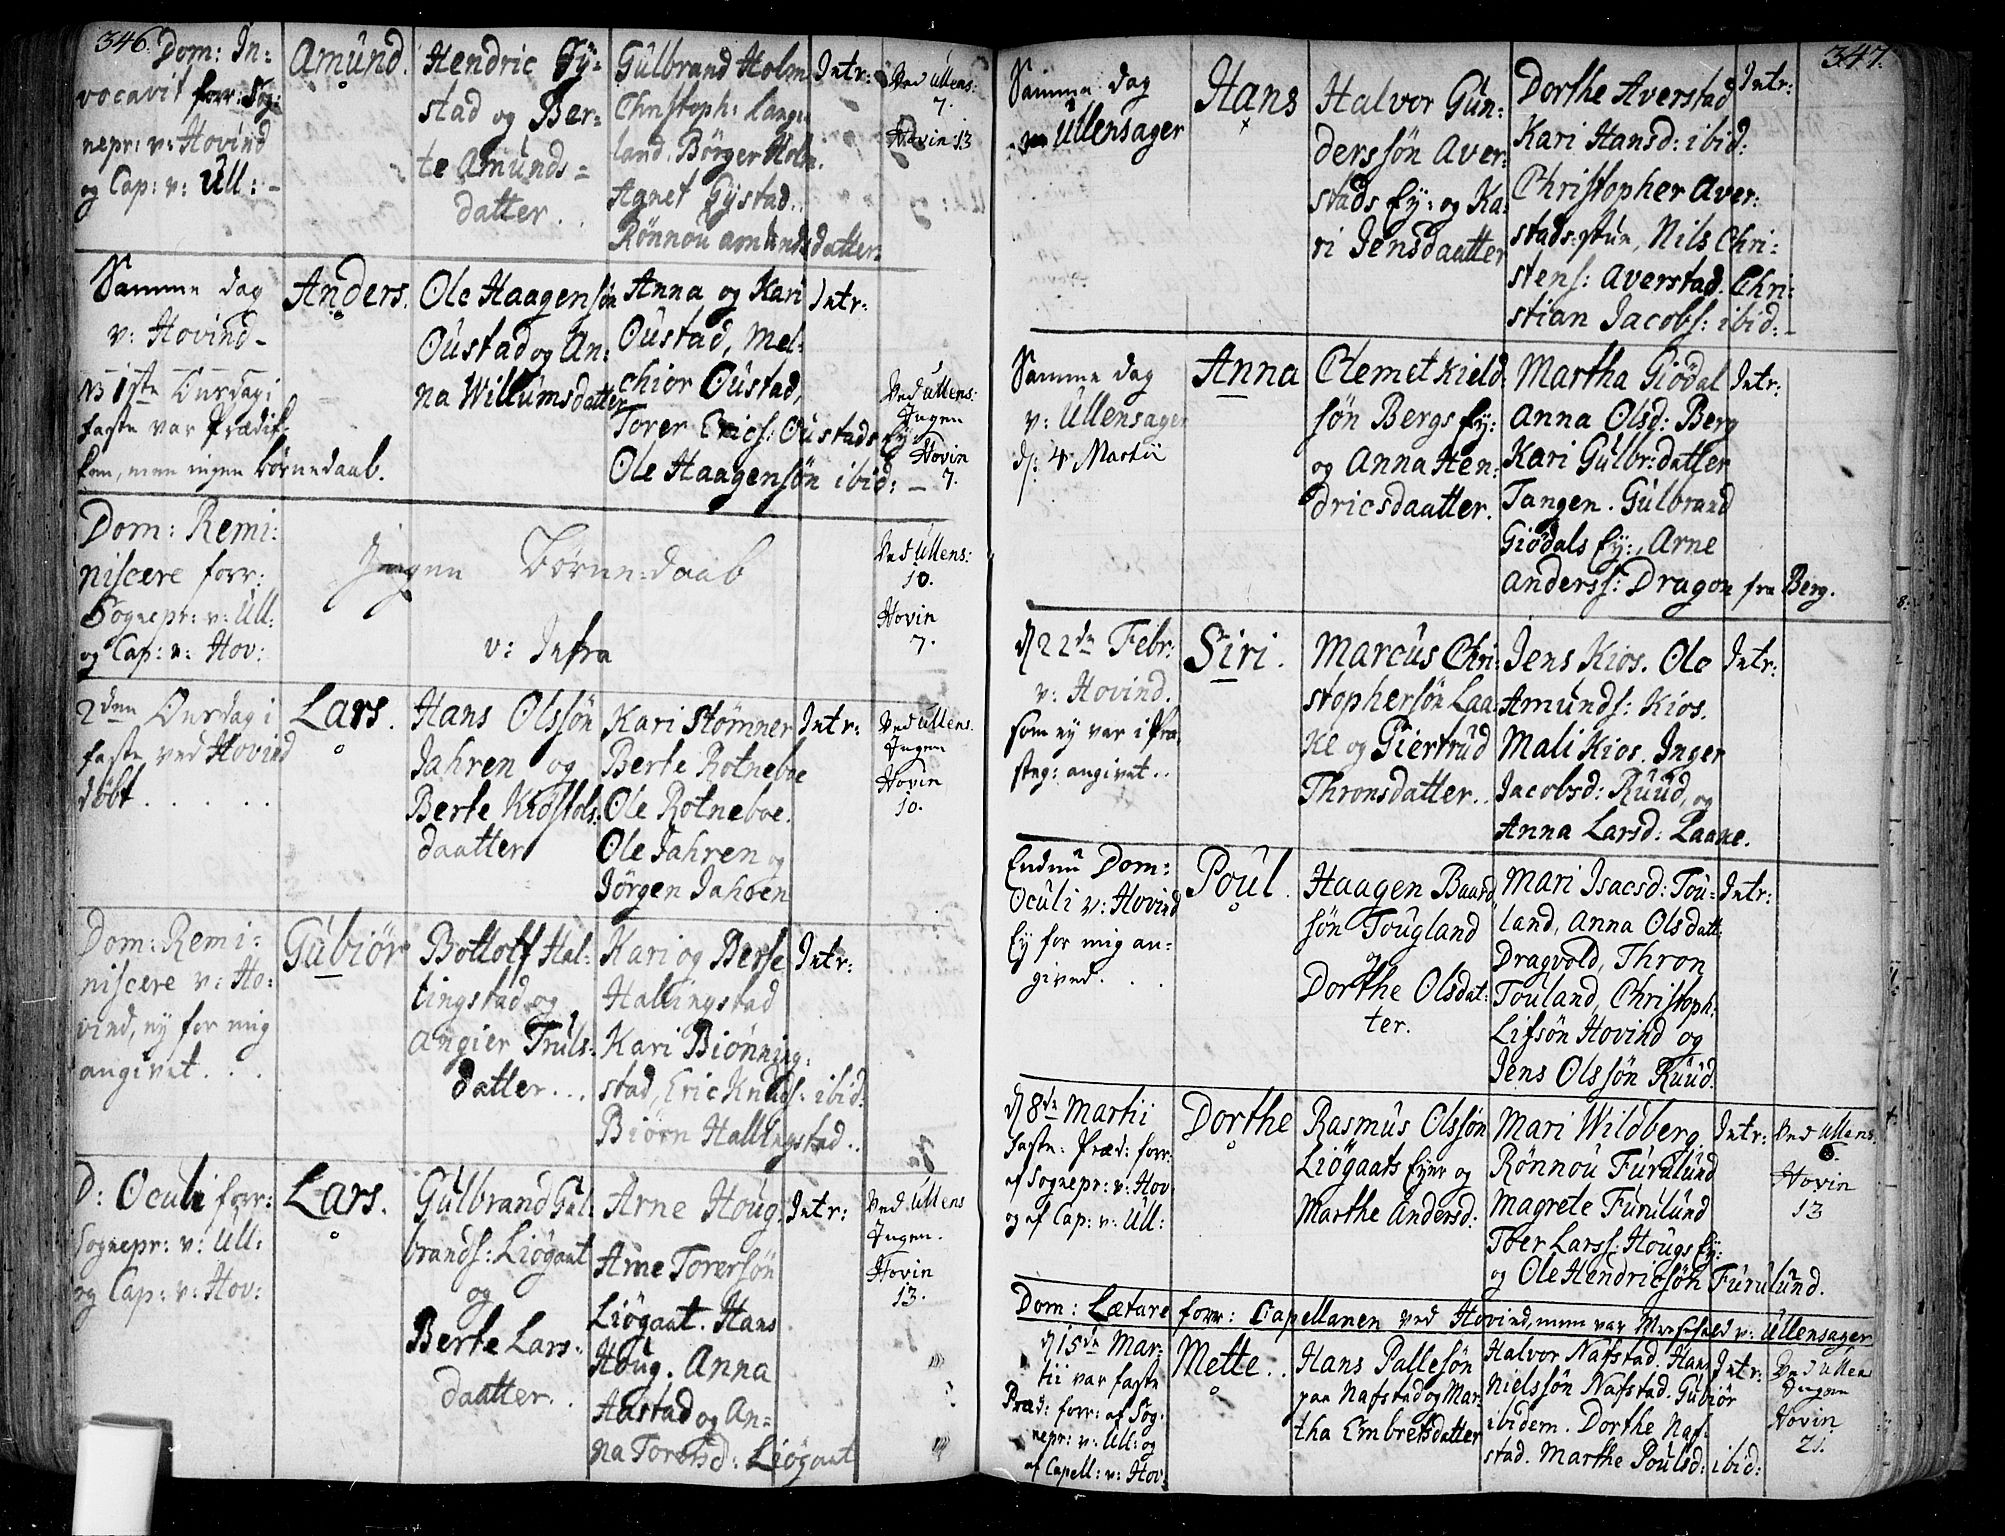 346.
Dom: In:
vocavit forr: Sog:
nepr: v: Hovind
og Cap: v: Ull: –
Amund.
Hendric Gy:
stad og Ber:
te Amunds=
datter.
Gulbrand Holm
Christoph: Lange
land. Børger Holm.
Agnet Gystad..
Rønnou amundsdatter.
Intr:
Ved Ullens:
7.
Hovin 13
Samme dag
v: Hovind –
NB 1ste Onsdag i
faste var Prædik:
ken, men ingen børnedaab.
Anders.
Ole Haagensøn
Oustad og An:
na Willumsdatter
Anna og Kari
Oustad, Mel:
chior Oustad,
Torer Erics: Oustads Ey:
Ole Haagensøn ibid: –
Intr:
Ved Ullens:
Ingen
Hovin
7.
Dom: Remi:
niscere forr:
Sognepr: v: Ull:
og Cap: v: Hov:
Ingen Børne=daab
v: Infra
Ved Ullens:
10.
Hovin
7.
2den Onsdag i
faste ved Hovind
døbt . . . . .
Lars.
Hans Olssøn
Jahren og
Berte Kiøstols:
daatter
Kari Stømner
Berte Rotneboe
Ole Rotneboe.
Ole Jahren og
Jørgen Jahren
Intr:
Ved Ullens.
Ingen
Hovin
10.
Dom: Remi:
niscere v: Ho:
vind, ey for mig
angivet . . .
Gubiør
Bottolf Hal:
tingstad og
Angier Truls:
datter . . .
Kari og Berte
Hallingstad
Kari Biønning:
stad, Eric Knuds: ibid:
Biørn Hallingstad..
Intr:
D: Oculi forr:
Sognepr: v: Ull:
og Cap: v: Hov:
Lars.
Gulbrand Gul:
brands: Liøgaat
og
Berte Lars:
daatter..
Arne Houg.
Arne Torersøn
Liøgaat. Hans
Houg. Anna
Aastad og An=
na Torersd: Liøgaat
Intr:
Ved Ullens
Ingen.
Hovin
13.
347.
Samme dag
v: Ullensager
Hans
Halvor Gun:
derssøn Aver:
stads Ey: og Ka:
ri Jensdaatter
Dorthe Averstad
Kari Hansd: ibid:
Christopher Aver:
stads:stue, Nils Chri:
stens: Averstad. Chri:
stian Jacobs: ibid: –
Intr:
Samme dag
v: Ullensager
d: 4 Martii
Anna
Clemet Kield:
søn Bergs Ey:
og Anna Hen:
dricsdaatter.
Martha Giødal
Anna Olsd: Berg
Kari Gulbr:datter
Tangen. Gulbrand
Giødals Ey:, Arne
Anderss: Dragon fra Berg.
Intr:
d 22de Febr:
v: Hovind.
som ey var i Præ
steg: angivet..
Siri.
Marcus Chri:
stophersøn Laa
ke og Giertrud
Thronsdatter..
Jens Kios. Ole
Amunds: Kios.
Mali Kios. Inger
Jacobsd: Ruud, og
Anna Larsd: Laane.
Intr:
Endnu Dom:
Oculi v: Hovind
Ey for mig an=
given. . .
Poul.
Haagen Baard
søn Tougland
og
Dorthe Olsdat:
ter.
Mari Isacsd: Tou=
land, Anna Olsdatt:
Dragvold, Thron
Touland, Christoph:
Lifsøn Hovind og
Jens Olssøn Ruud.
Intr:
d 8de Martii
faste: Præd: forr:
af Sognepr: v: Hov:
og af Cap: v: Ull:
Dorthe
Rasmus Olssøn
Liøgaats Eyer og
Marthe Andersd:
Mari Wildberg.
Rønnou Furulund
Magrete Furulund
Toer Larss: Hougs Ey:
og Ole Hendricsøn Furulund.
Intr:
Ved Ullens
Hovin
13
Dom: Lætare forr: Capellanen ved Hovind, men var Messefald v: Ullensager
d 15de Mar=
tii var faste
Præd: forr: af Sog:
nepr: v: Ull: og
af Capell: v: Hov:
Mette . .
Hans Pallesøn
paa Nafstad og Mar:
tha Embretsdatter
Halvor Nafstad. Hans
Nielssøn Nafstad. Gubiør
ibidem. Dorthe Naf=
stad. Marthe Poulsd: ibid:
Intr:
Ved Ullen
Ingen
Hovin
21.